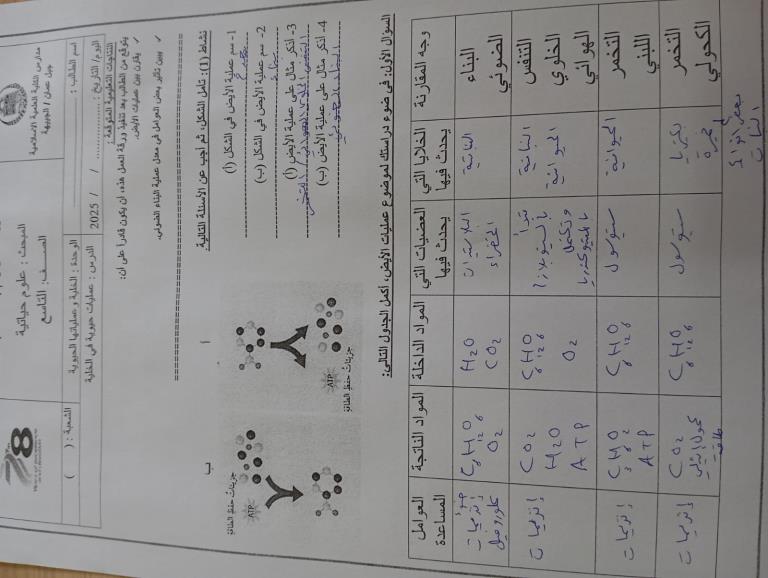 مدارس الكلية العلمية الاسلامية
جبل عمان / الجبيهة
المبحث : علوم حياتية
الصف: التاسع
اسم الطالب :
الوحدة : الخلية وعملياتها الحيوية
الشعبة : ( )
اليوم/ التاريخ : / / 2025
الدرس : عمليات حيوية في الخلية
النتاجات التعليمية المتوقعة :
يتوقع من الطالب بعد تنفيذ ورقة العمل هذه، ان يكون قادرا على ان:
✓ يقارن بين عمليات الأيض.
✓ يبين تأثير بعض العوامل في معدل عملية البناء الضوئي.
نشاط (1): تأمل الشكل، ثم اجب عن الأسئلة التالية.
1- سم عملية الأيض في الشكل (أ)
هدم
2- سم عملية الأيض في الشكل (ب)
بناء
3- اذكر مثال على عملية الأيض (أ)
التنفس الخلوي الهوائي / التخمر
4- اذكر مثال على عملية الأيض (ب)
البناء الضوئي
أ
ب
ATP
جزيئات حفظ الطاقة
جزيئات حفظ الطاقة
ATP
السؤال الأول: في ضوء دراستك لموضوع عمليات الأيض، أكمل الجدول التالي:
وجه المقارنة
الخلايا التي يحدث فيها
العضيات التي يحدث فيها
المواد الداخلة
المواد الناتجة
العوامل المساعدة
البناء الضوئي
النباتية
البلاستيدات الخضراء
H2O
CO2
C6H12O6
O2
ضوء
إنزيمات
كلوروفيل
التنفس الخلوي الهوائي
النباتية
الحيوانية
تبدأ
بالسيتوبلازم
وتكتمل
بالميتوكندريا
C6H12O6
O2
CO2
H2O
ATP
إنزيمات
التخمر اللبني
الحيوانية
سيتوسول
C6H12O6
ATP
إنزيمات
التخمر الكحولي
بكتيريا
خميرة
بعض أنواع
النباتات
سيتوسول
C6H12O6
CO2
كحول إيثيلي
طاقة
إنزيمات